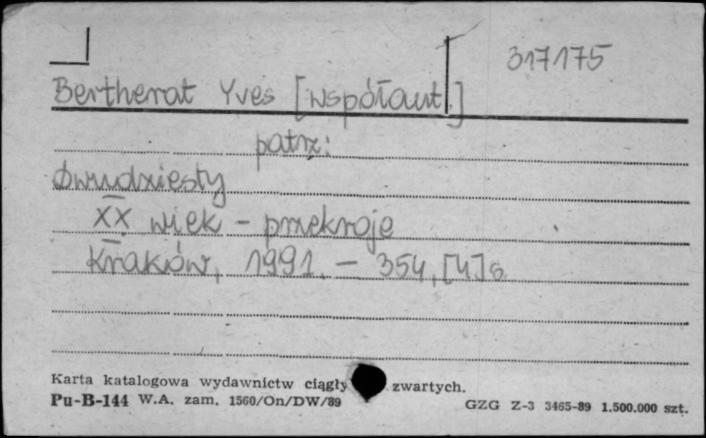 317175
Bertherat Yves [współaut.]
patrz:
Dwudziesty
XX wiek - przekroje
Kraków, 1991. - 354, [4] s.
Karta katalogowa wydawnictw ciągły zwartych.
Pu-B-144 W.A. zam. 1560/On/DW/89
GZG Z-3 3465-89 1.500.000 szt.